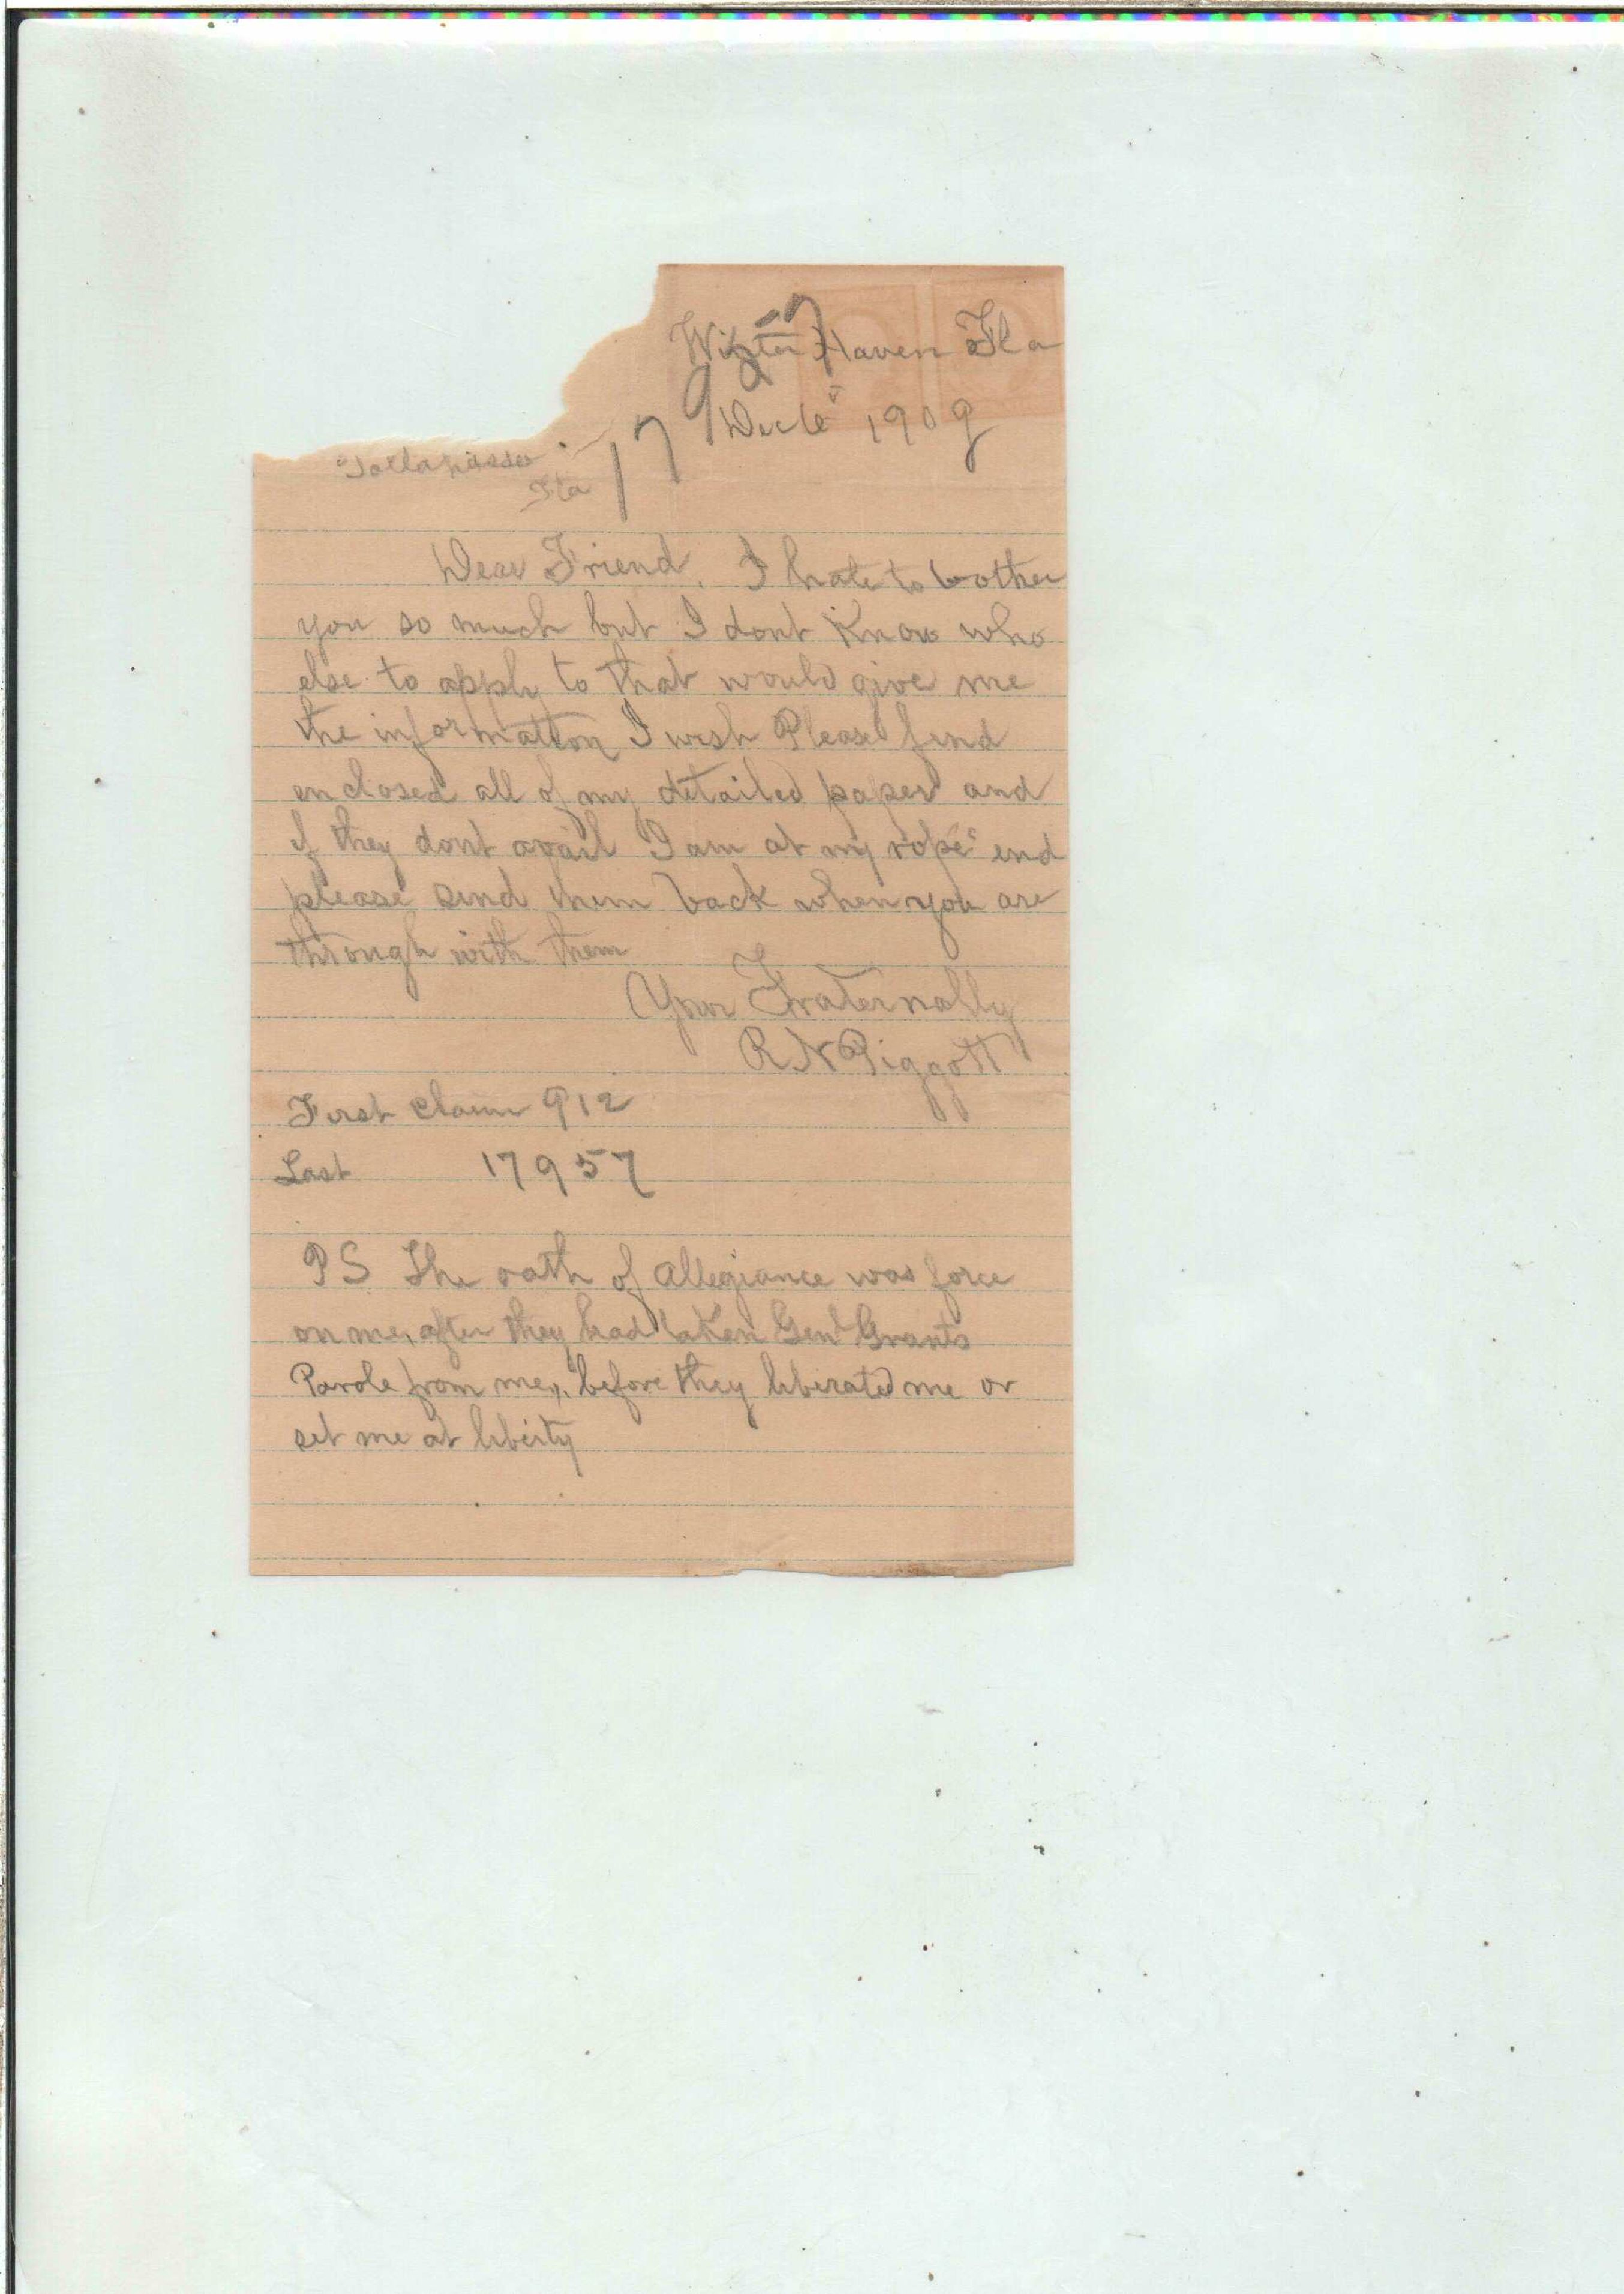 Winter Haven Fla
Dec 6" 1909
17957
Tallahassee
Fla
Dear Friend. I hate to bother
you so much but I dont Know who
else to apply to that would give me
the information I wish Please find
enclosed all of my detailed paper and
if they dont avail I am at my rope end
please send them back when you are
through with them
Your Fraternally
R N Piggott
First claim 912
Last 17957
PS The oath of allegiance was force
on me, after they had taken Genl Grants
Parole from me, before they liberated me or
set me at liberty